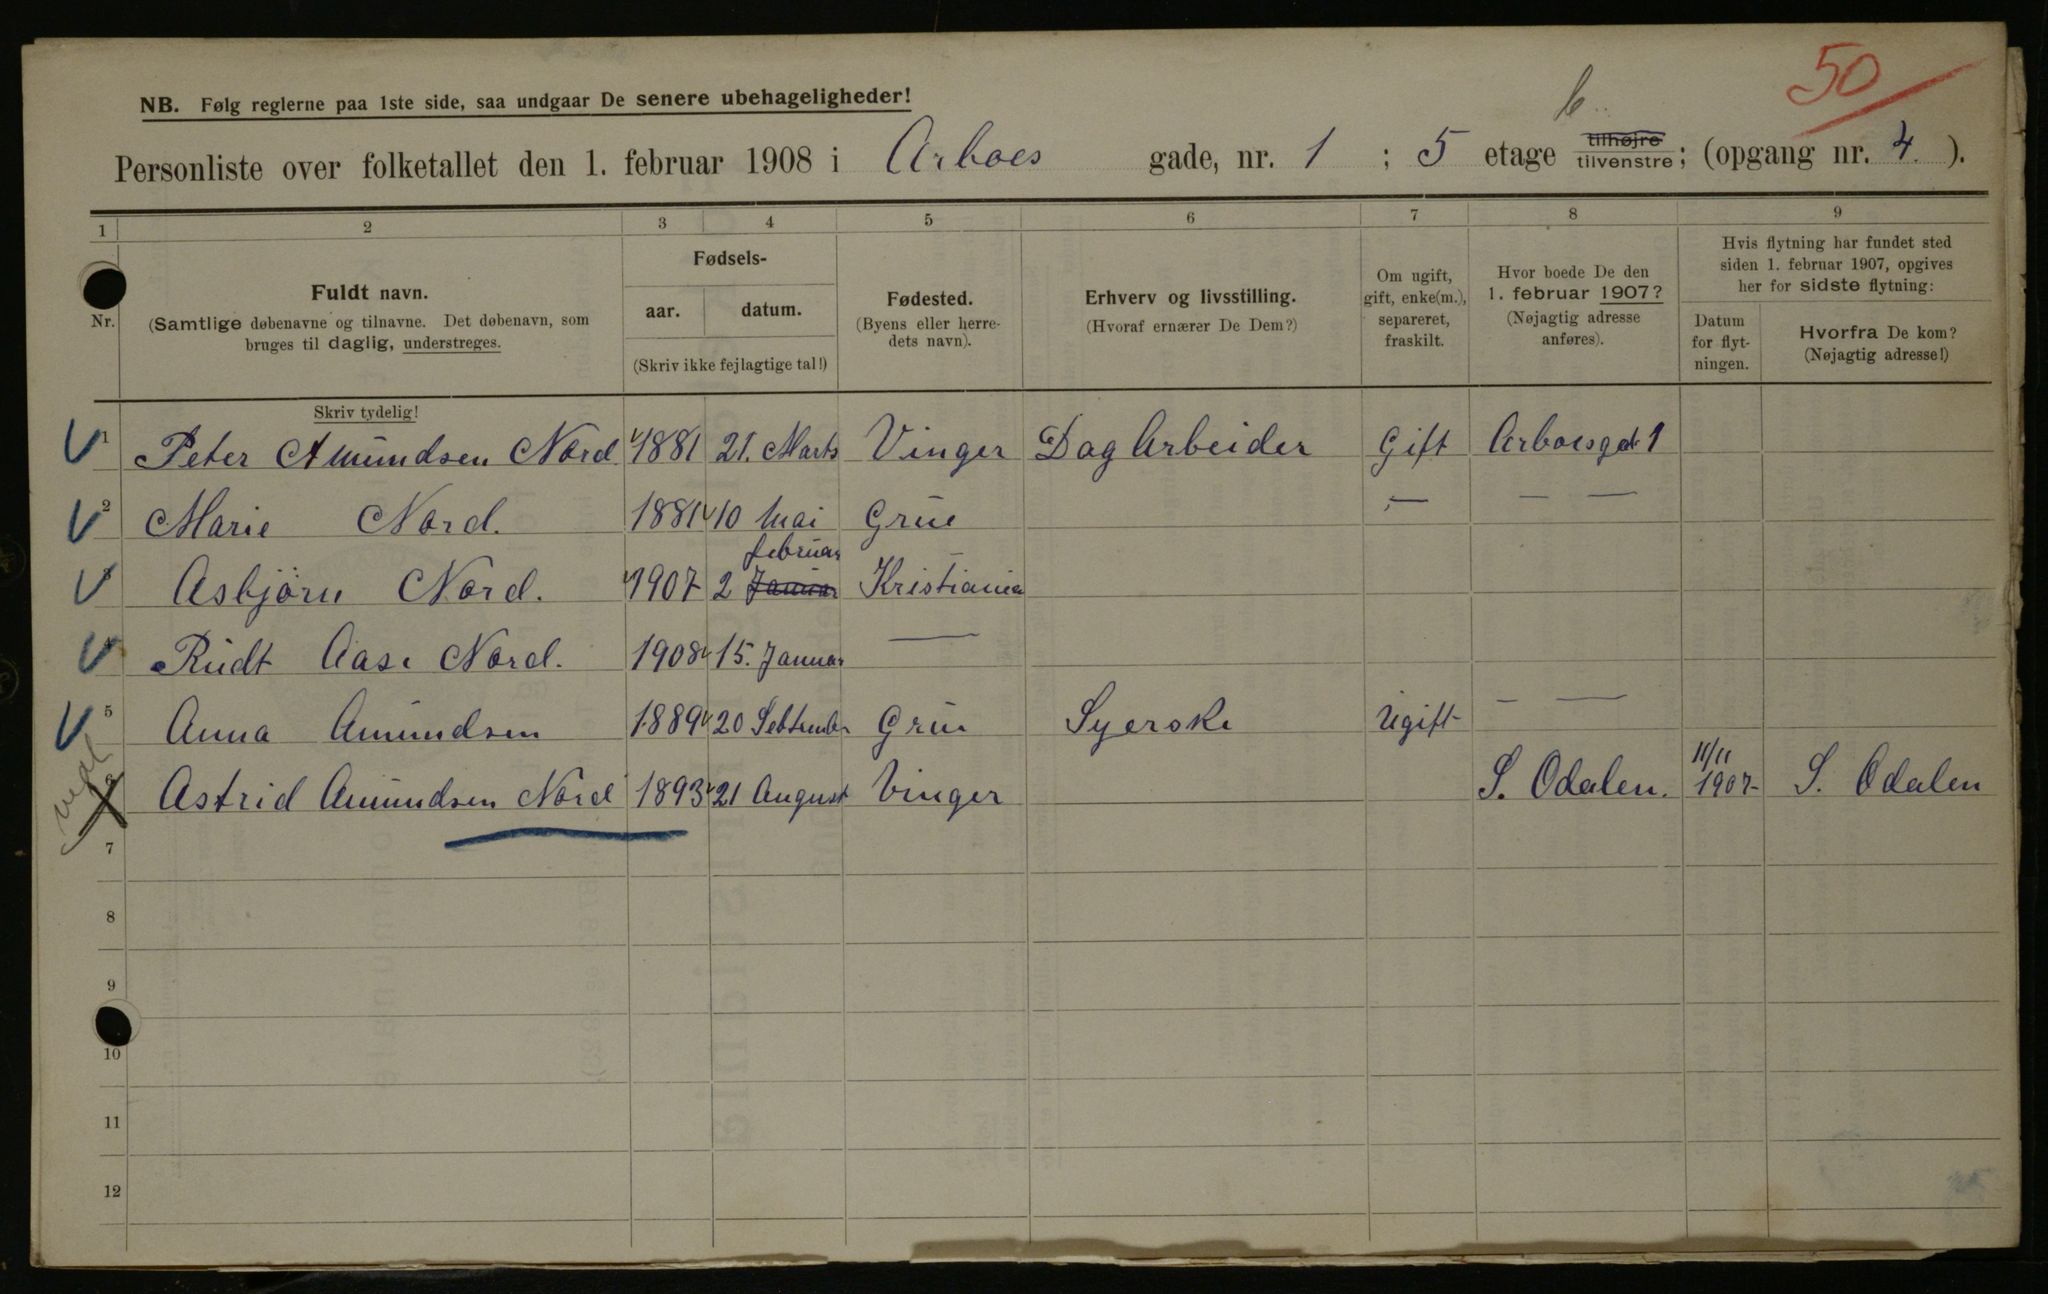 50
NB. Følg reglerne paa 1ste side, saa undgaar De senere ubehageligheder!
Personliste over folketallet den 1. februar 1908 i Arboes gade, nr. 1 ; 5 etage tilhøjre tilvenstre; (opgang nr. 4. ).
1 2 3 4 5 6 7 8 9
Nr.
Fuldt navn.
(Samtlige døbenavne og tilnavne. Det døbenavn, som
bruges til daglig, understreges.
Skriv tydelig!
Fødsels-
aar. datum.
(Skriv ikke fejlagtige tal!)
Fødested.
(Byens eller herre-
dets navn).
Erhverv og livsstilling.
(Hvoraf ernærer De Dem?)
Om ugift,
gift, enke(m.),
separeret,
fraskilt.
Hvor boede De den
1. februar 1907?
(Nøjagtig adresse
anføres).
Hvis flytning har fundet sted
siden 1. februar 1907, opgives
her for sidste flytning:
Datum
for flyt-
ningen.
Hvorfra De kom?
(Nøjagtig adresse!)
1 Peter Amundsen Nord. 1881 21. Marts Vinger Dag Arbeider Gift Arboesgd 1
2 Marie Nord. 1881 10 Mai Grue — — —
februar
Asbjörn Nord. 1907 2 Januar Kristiania
Rudt Aase Nord. 1908 15. Januar —
5 Anna Amundsen 1889 20 Sebtember Grue Syerske Ugift — —
11/11
6 Astrid Amundsen Nord 1893 21 August Vinger S. Odalen. 1907 S. Odalen
7
8
9
10
11
12